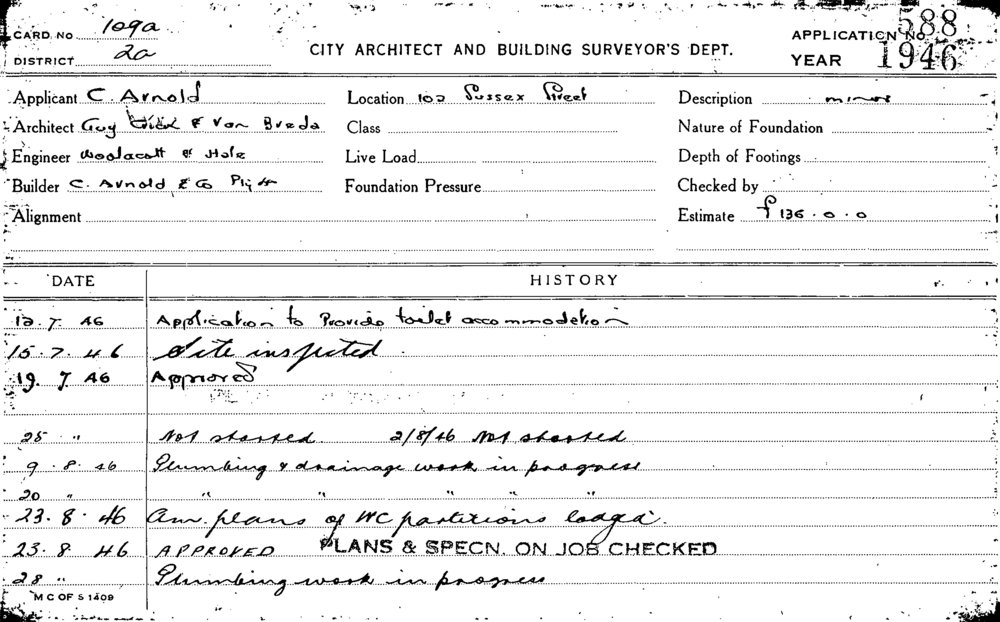 CARD No 109a
DISTRICT 2a
CITY ARCHITECT AND BUILDING SURVEYOR'S DEPT.
APPLICATION No 588
YEAR 1946
Applicant C. Arnold
Location 102 Sussex Street
Description minor
Architect Guy & Van Breda
Class
Nature of Foundation
Engineer Woolacott & Hale
Live Load
Depth of Footings
Builder C. Arnold & Co Pty
Foundation Pressure
Checked by
Alignment
Estimate £136.0.0
DATE HISTORY
12. 7. 46 Application to Provide toilet accommodation
15. 7. 46 Site inspected
19. 7 46 Approved
25 " Not started. 2/8/46 Not started
9. 8. 46 Plumbing & drainage work in progress
20 " " " " " "
23. 8. 46 Am. plans of WC partitions lodged.
23. 8 46 APPROVED PLANS & SPECN. ON JOB CHECKED
28 " Plumbing work in progress
M C OF S 1409